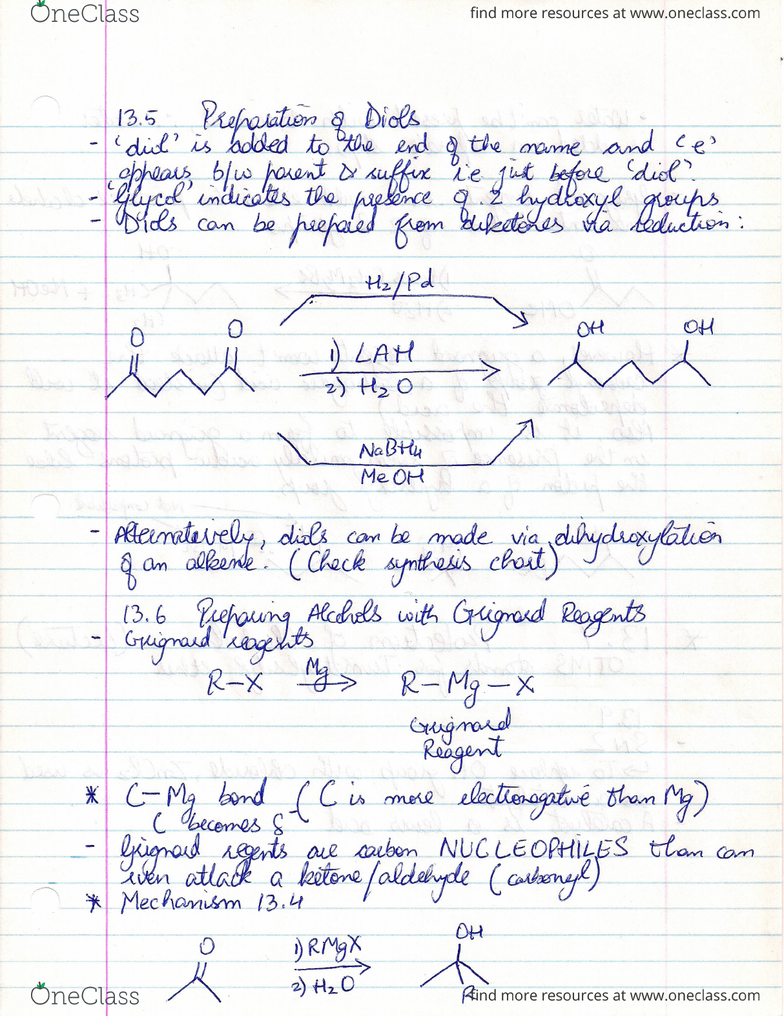 OneClass
find more resources at www.oneclass.com
13.5 Preparation of Diols
- 'diol' is added to the end of the name and 'e'
appears b/w parent & suffix i.e just before 'diol'.
- 'Glycol' indicates the presence of 2 hydroxyl groups
- Diols can be prepared from diketones via reduction:
H2/Pd
O O 1) LAH OH OH
2) H2O
NaBH4
MeOH
- Alternatively, diols can be made via dihydroxylation
of an alkene. (Check synthesis chart)
13.6 Preparing Alcohols with Grignard Reagents
- Grignard reagents
R-X Mg R-Mg-X
Grignard
Reagent
* C-Mg bond (C is more electronegative than Mg)
C becomes δ-
- Grignard regents are carbon NUCLEOPHILES than can
even attack a ketone/aldehyde (carbonyl)
* Mechanism 13.4
O 1) RMgX OH
2) H2O R
OneClass
find more resources at www.oneclass.com